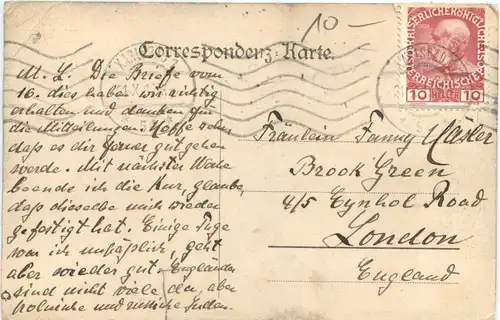 10-
Correspondenz-Karte.
KAISERLICHE KÖNIGLICHE
ÖSTERREICHISCHE
10 HELLER 10
M. L. Die Briefe vom
16. dies haben wir richtig
erhalten und danken für
die Mitteilungen. Hoffe sehr
daß es dir ferner gut gehen
werde. Mit nächster Woche
beende ich die Kur, glaube,
daß dieselbe mich wieder
gefestigt hat. Einige Tage
war ich unpäßlich, geht
aber wieder gut. Engländer
sind nicht viele da, aber
polnische und russische Juden.
Fräulein Fanny
Brook Green
4/5 Eynhol Road
London
England